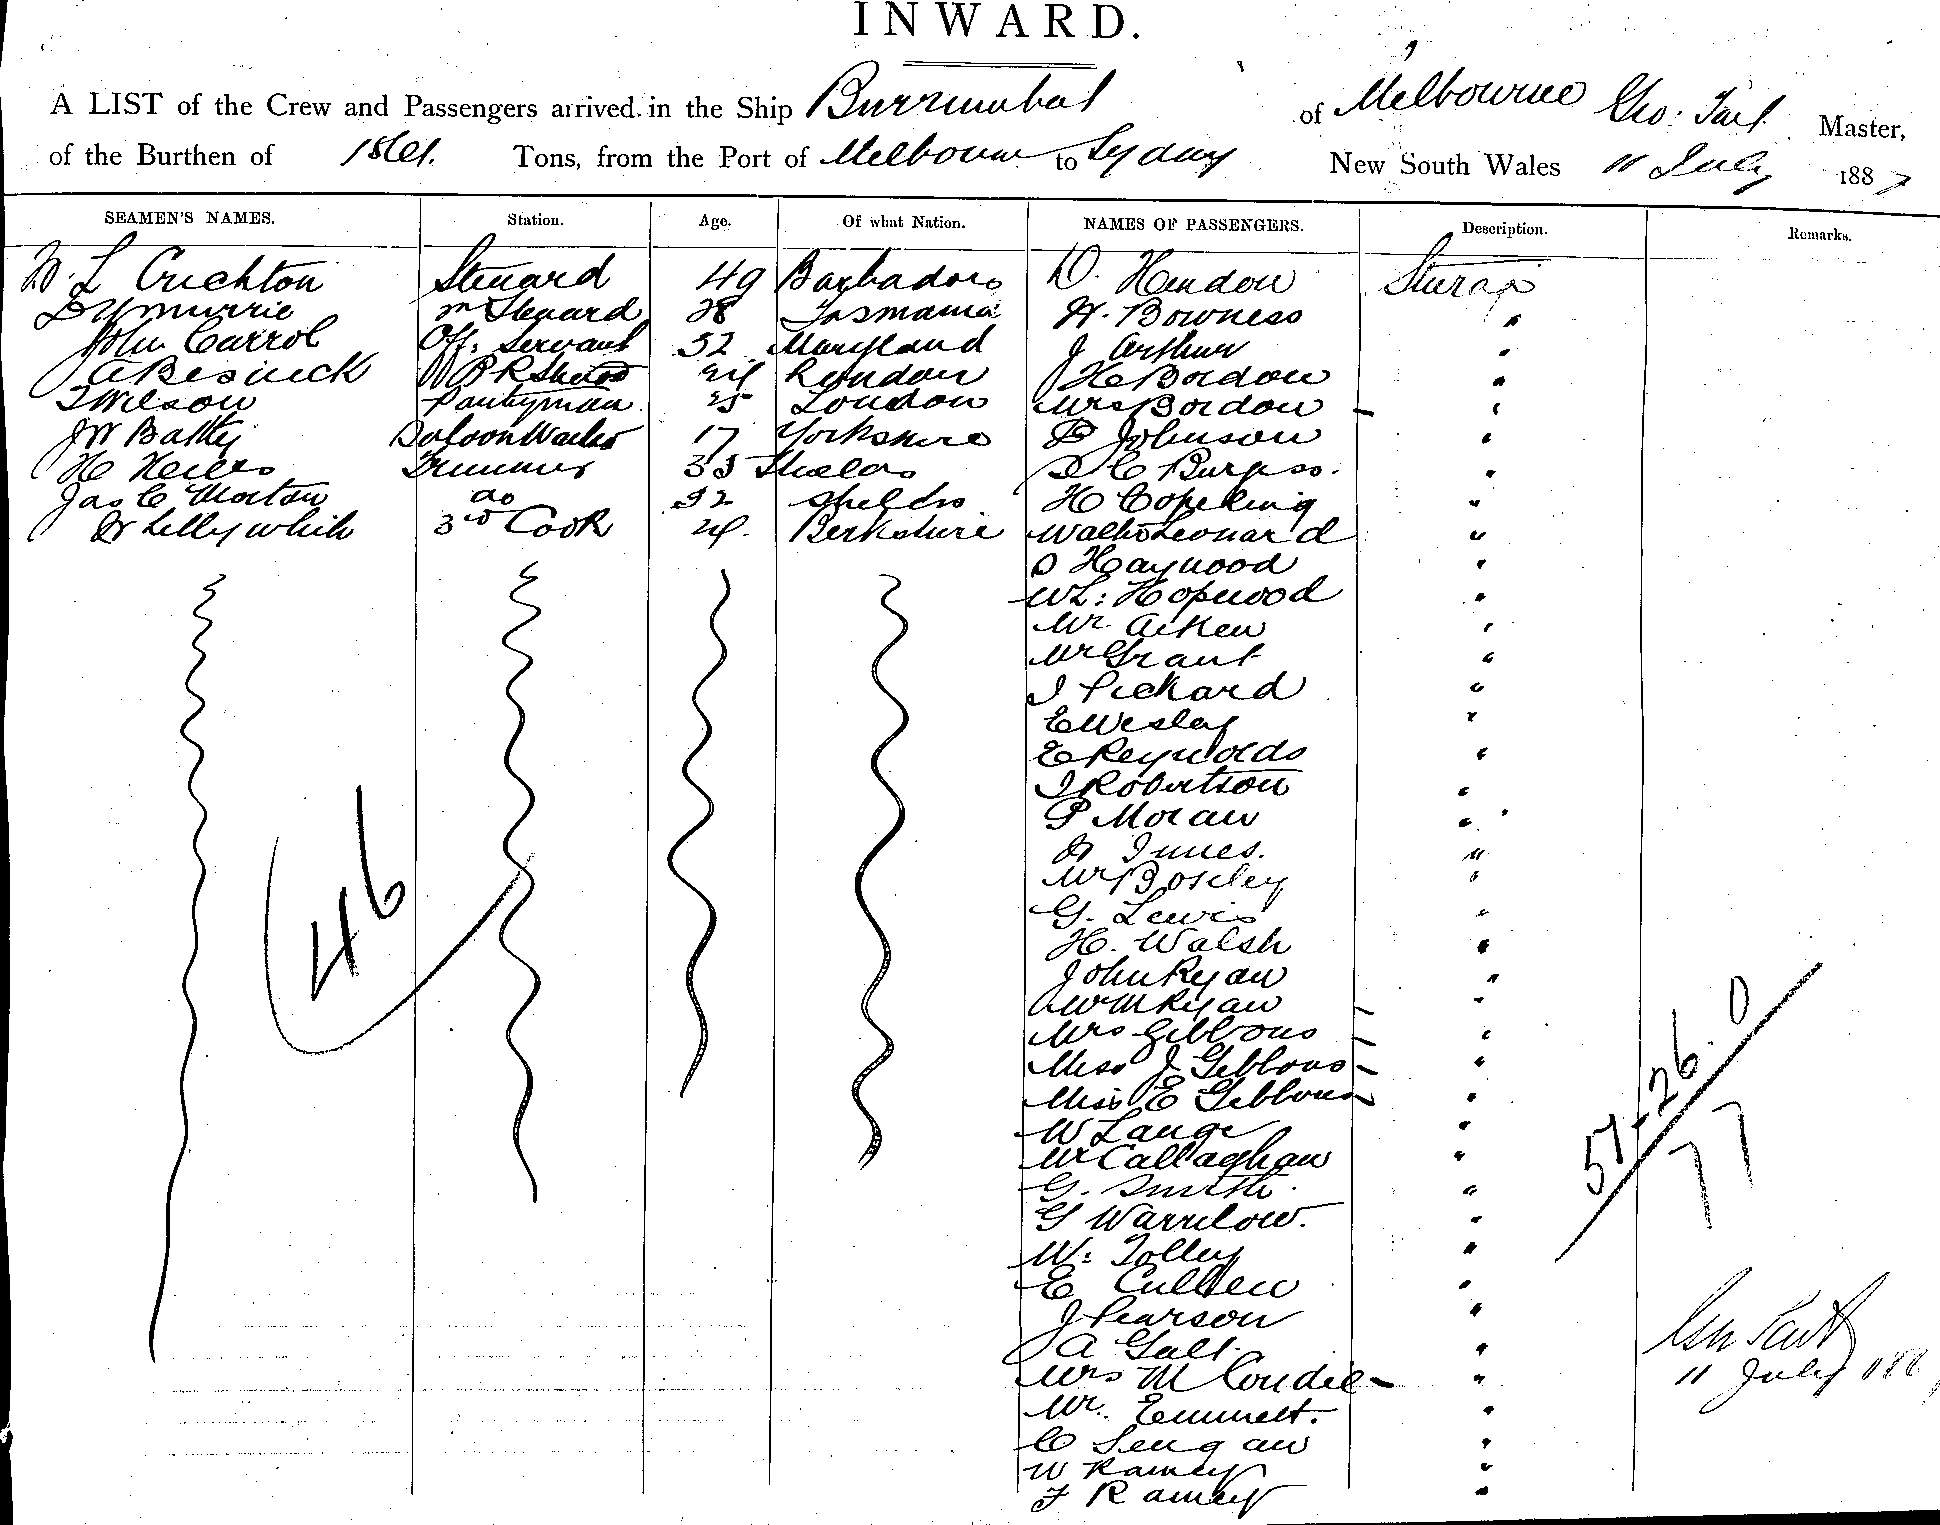 INWARD.
A LIST of the Crew and Passengers arrived in the Ship Burrumbeet of Melbourne Geo: Tait Master,
of the Burthen of Tons, from the Port of Melbourne to Sydney New South Wales 11 July 1887
SEAMEN'S NAMES. Station. Age. Of what Nation. NAMES OF PASSENGERS. Description. Remarks.
W. L Crichton Steward 49 Barbadoes D. Hendon Steerage
Steward 28 Tasmania H. Bowness "
John Carrol Off. Servant 52 Maryland J Arthur "
A Beswick 24 London H Bordon "
T Wilson Pantryman 25 London Mrs Bordon "
JW Batty Saloon Waiter 17 Yorkshire P Johnson "
H Trimmer 33 Shields Burgess. "
Jas C Morton do 32 Shields H Copeling "
W Lillywhite 3rd Cook 24. Berkshire Walter Leonard "
S Haywood "
WL: Hopwood "
Mr. Aitken "
Mr Grant "
J Pickard "
E Wesley "
E Reynolds "
J Robertson "
P Moran "
Innes. "
Mr Boseley "
G. Lewis "
H. Walsh "
John Ryan "
Wm Ryan "
Mrs Gibbons "
Miss J Gibbons "
Miss E Gibbons "
W Lange "
Mr Callaghan "
G. Smith "
G Warrilow. "
W: Tolley "
E Cullen "
J Pearson "
A Galt. "
Mrs M Condie "
Mr. Emmett. "
C "
W Ramey "
F Ramey "
46
51-26.0
77
Geo Tait
11 July 1887